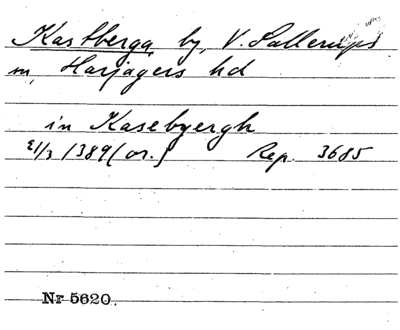 Kastberga by, V. Sallerups
sn, Harjagers hd
in Kasebyergh
21/3 1389 (or.) Rep. 3685
Nr 5620.